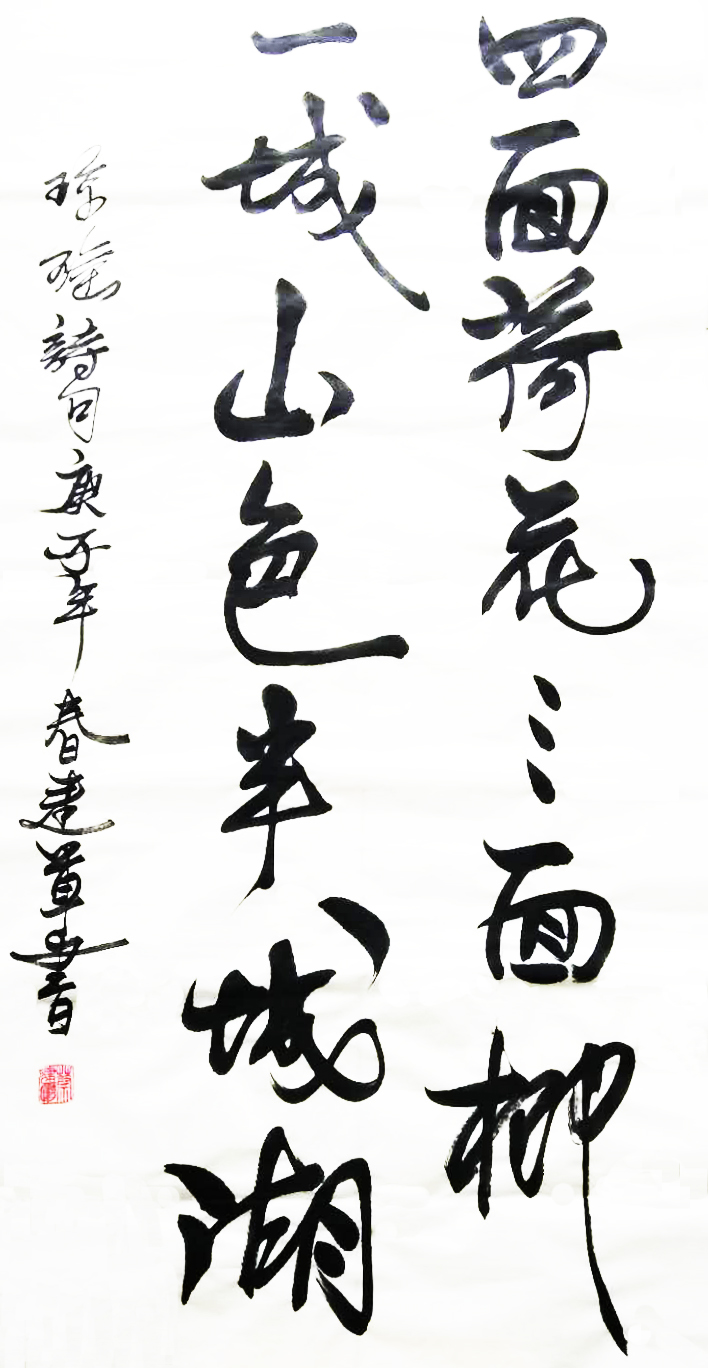 四面荷花三面柳
一城山色半城湖
琼瑶詩句庚子年春建草書